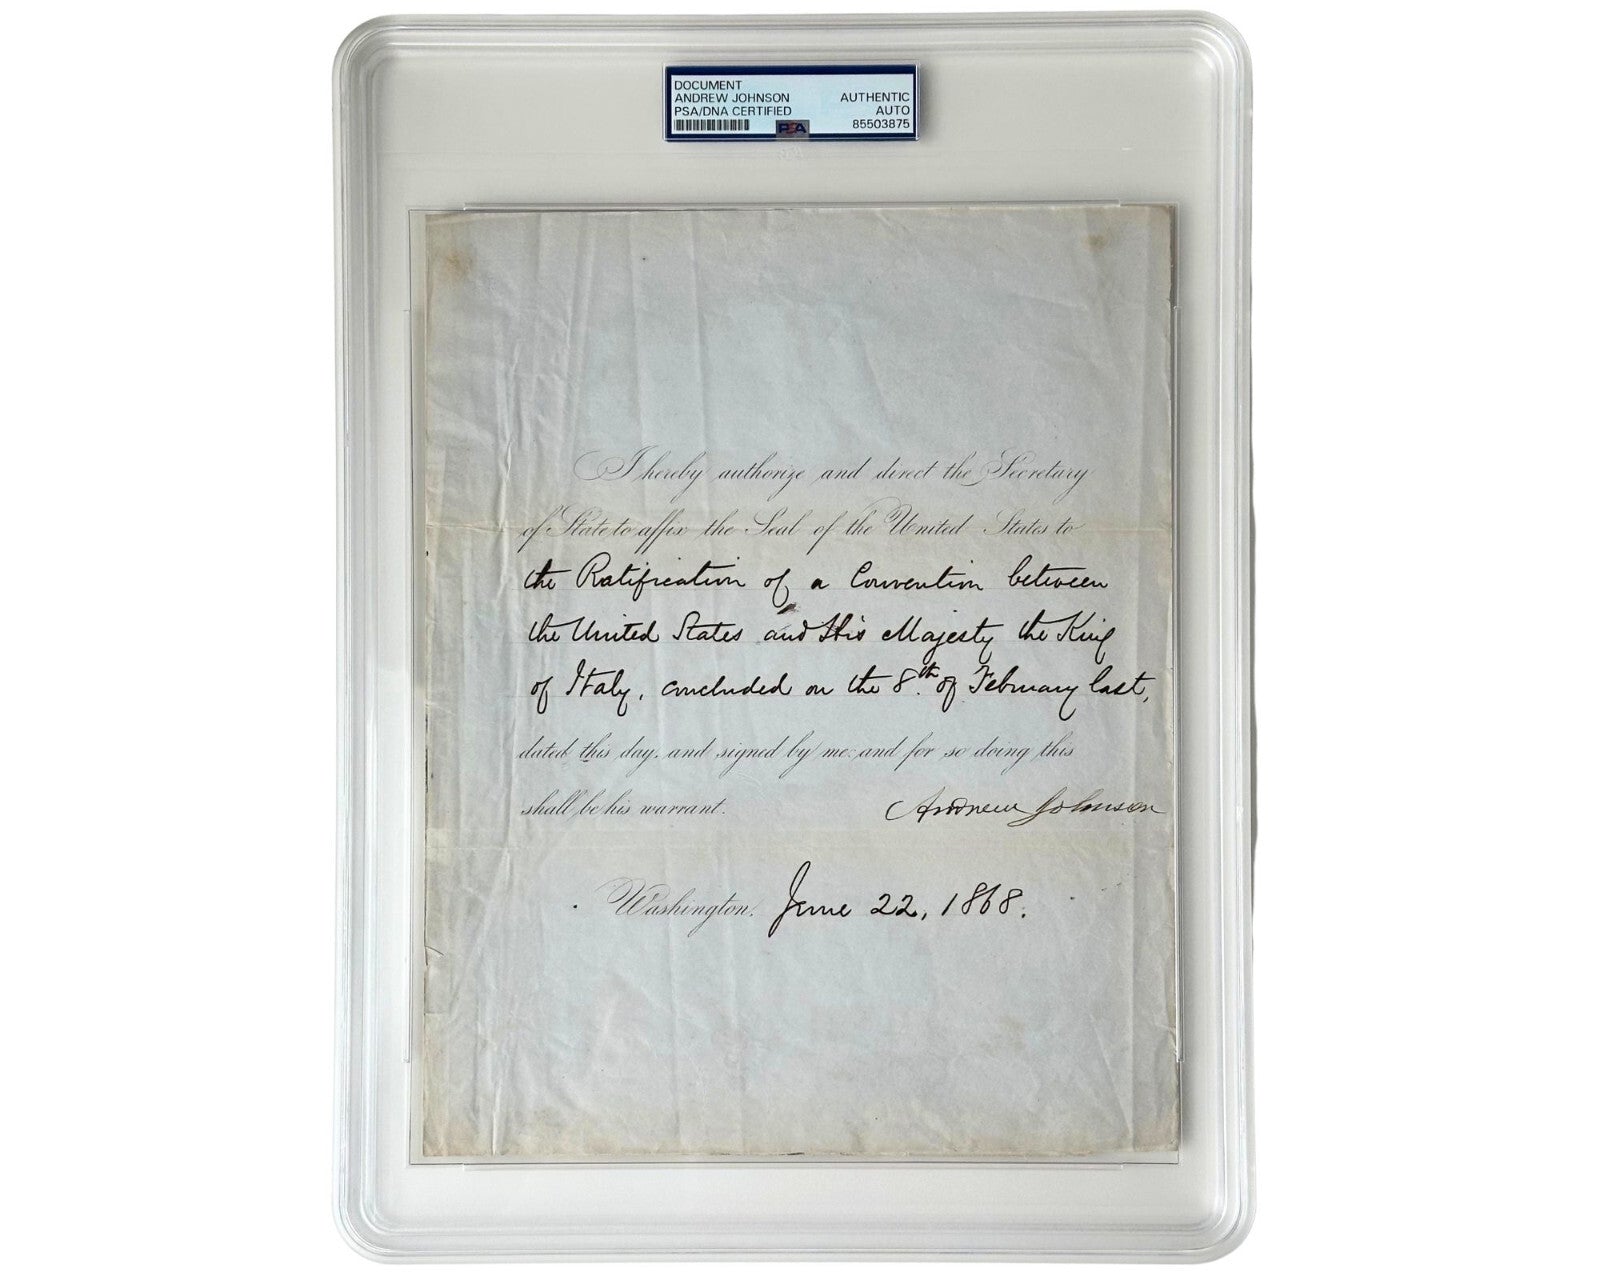 DOCUMENT
ANDREW JOHNSON AUTHENTIC
PSA/DNA CERTIFIED AUTO
PSA 85503875
I hereby authorize and direct the Secretary
of State to affix the Seal of the United States to
the Ratification of a Convention between
the United States and His Majesty the King
of Italy, concluded on the 8th of February last,
dated this day, and signed by me: and for so doing this
shall be his warrant. Andrew Johnson
Washington, June 22, 1868.